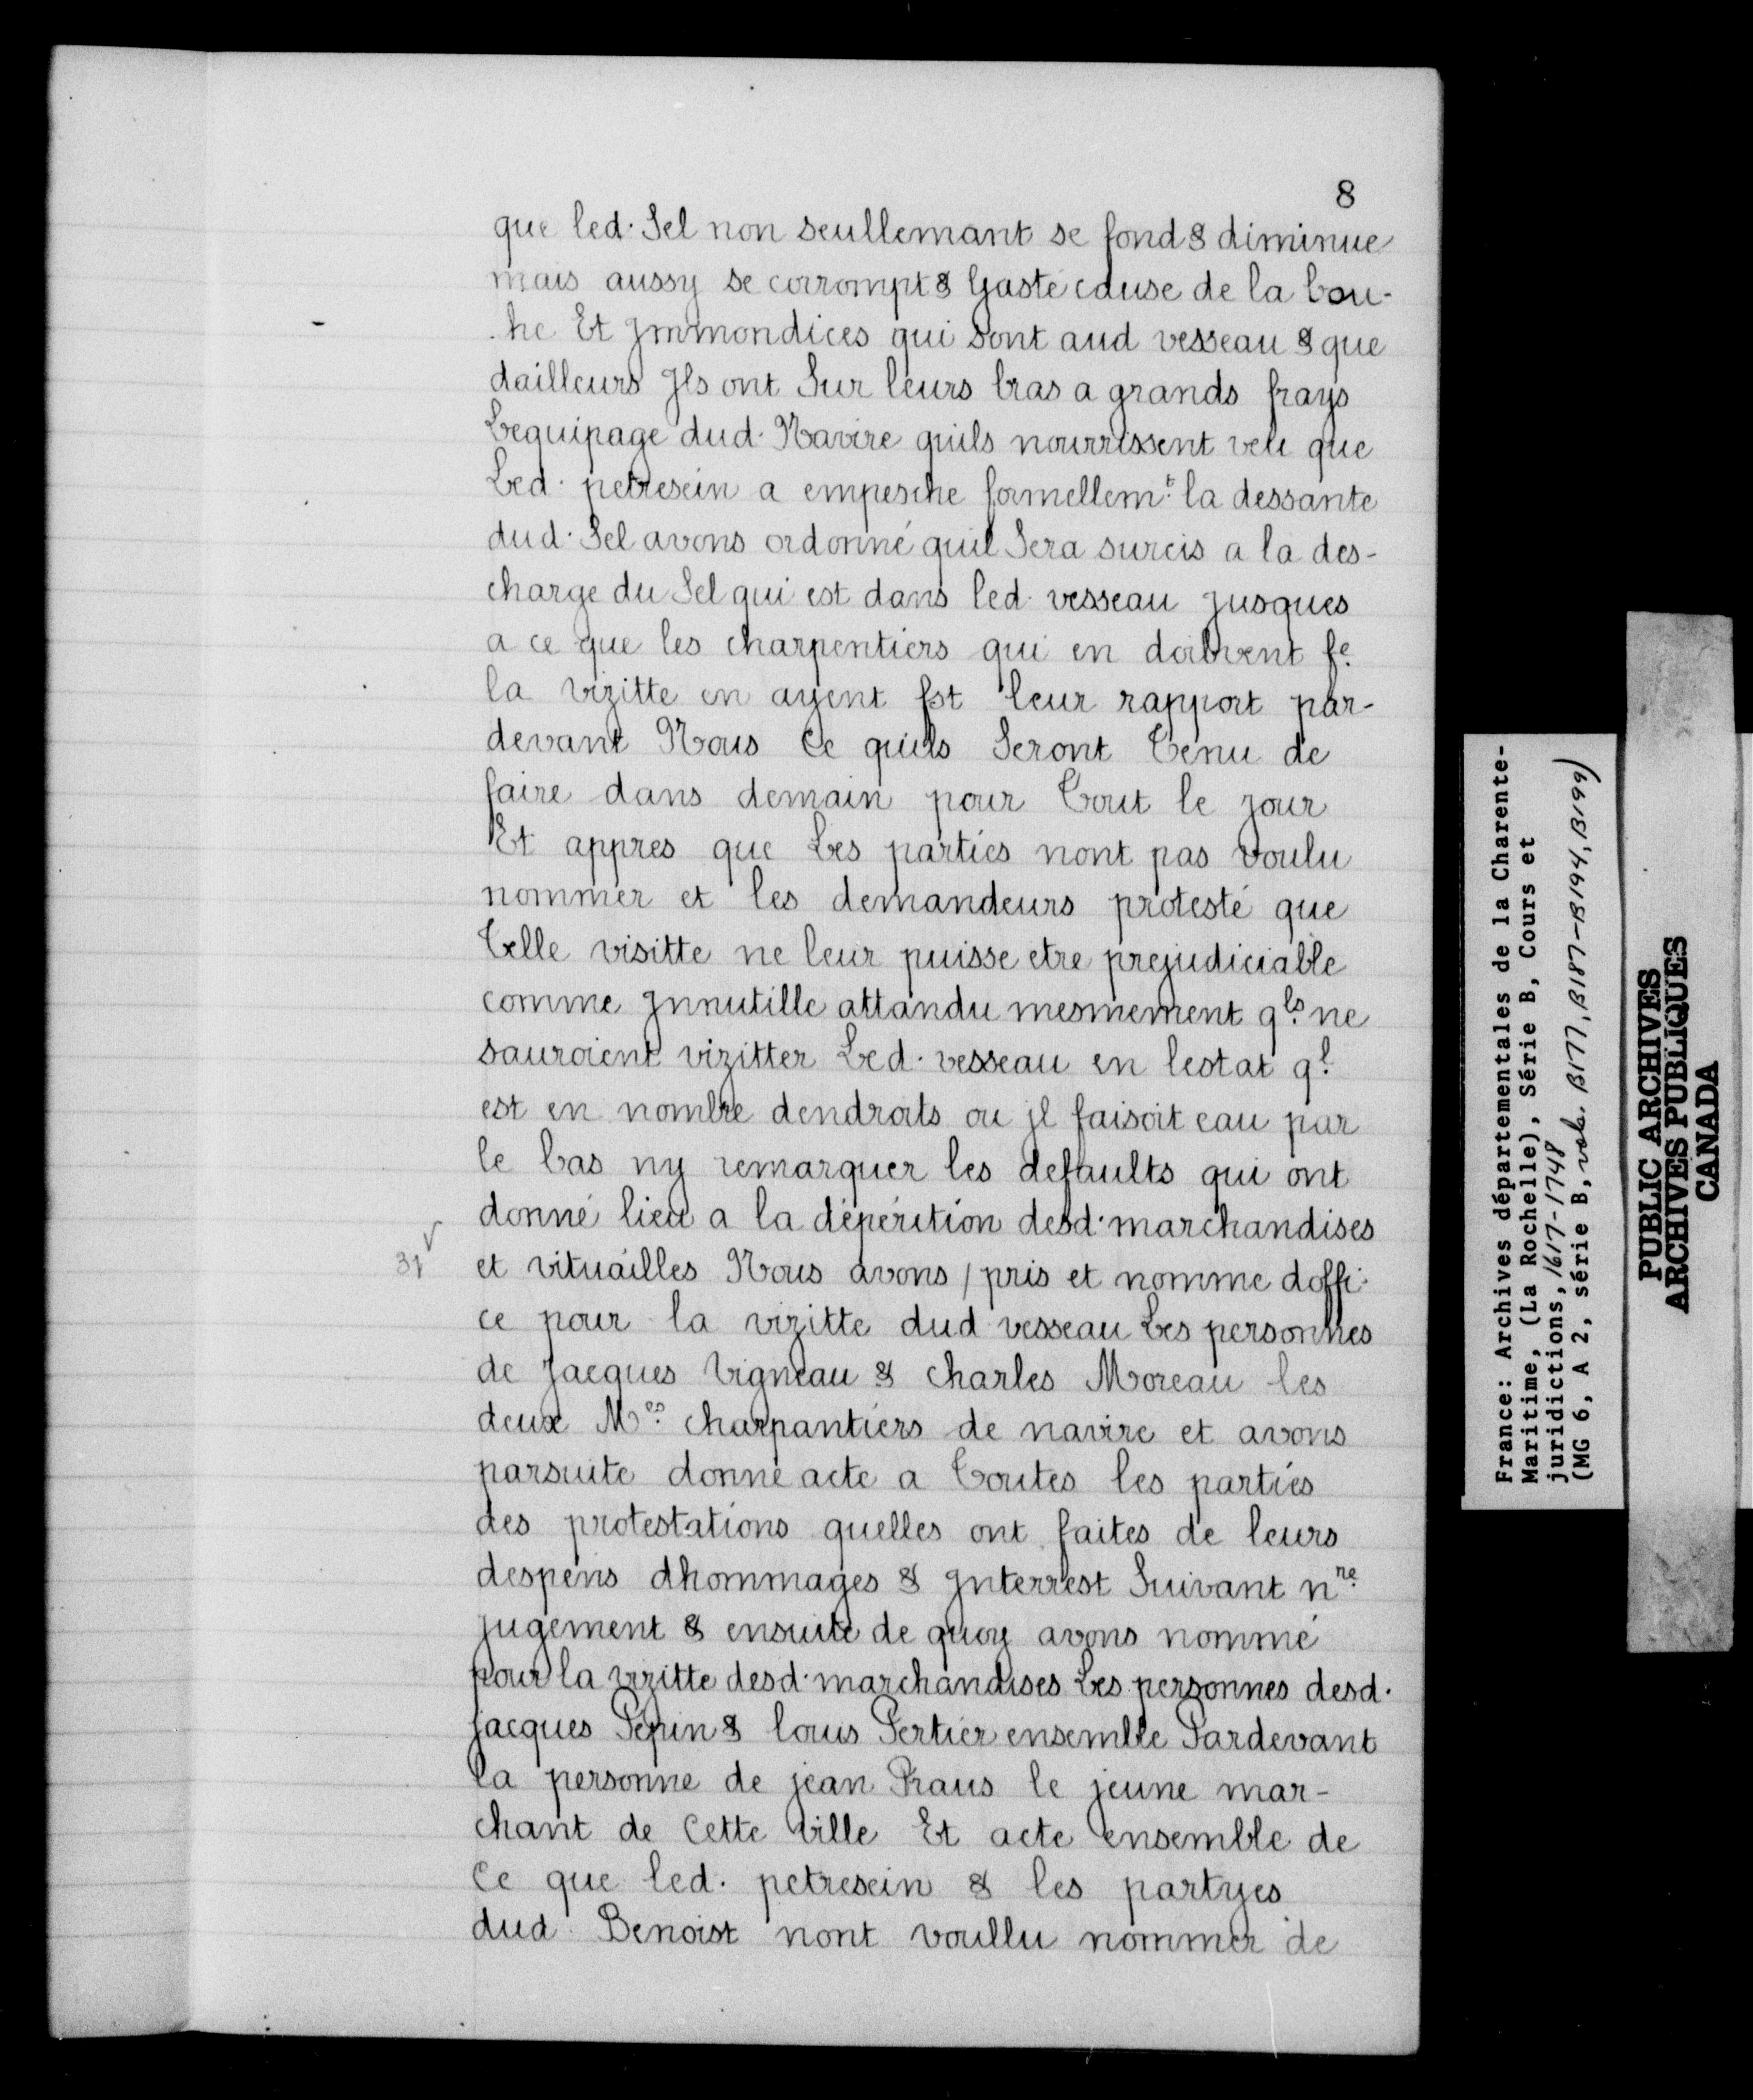 8
que led. Sel non seullemant se fond & diminue
mais aussy se corrompt & Gaste cause de la bou-
he Et Jmmondices qui sont aud vesseau & que
dailleurs Jls ont Sur leurs bras a grands frays
Lequipage dud. Navire quils nourrissent veu que
Led. petresein a empesche formellemt. la dessante
dud. Sel avons ordonné quil Sera surcis a la des-
charge du Sel qui est dans led. vesseau Jusques
a ce que les charpentiers qui en doibvent fe.
la vizitte en ayent fst leur rapport par-
devant Nous Ce quils Seront Tenu de
faire dans demain pour Tout le jour
Et appres que Les parties nont pas voulu
nommer et les demandeurs protesté que
Telle visitte ne leur puisse etre prejudiciable
comme Jnnutille attandu mesmement qls. ne
sauroient vizitter Led. vesseau en lestat ql.
est en nombre dendroits ou jl faisoit eau par
le bas ny remarquer les defaults qui ont
donné lieu a la dépérition desd. marchandises
31 et vituailles Nous avons / pris et nomme doffi-
ce pour la vizitte dud vesseau Les personnes
de Jacques Vigneau & Charles Moreau les
deux Mes. charpantiers de navire et avons
parsuite donné acte a Toutes les parties
des protestations quelles ont faites de leurs
despens dhommages & Jnterrest Suivant nre.
jugement & ensuite de quoy avons nommé
pour la vizitte desd. marchandises Les personnes desd.
Jacques Pepin & louis Pertier ensemble Pardevant
la personne de jean Praus le jeune mar-
chant de Cette Ville Et acte ensemble de
Ce que led. petresein & les partyes
dud. Benoist nont voullu nommer de
France: Archives départementales de la Charente-
Maritime, (La Rochelle), Série B, Cours et
juridictions, 1617-1748
(MG 6, A 2, série B, vols. B177, B187-B194, B199)
PUBLIC ARCHIVES
ARCHIVES PUBLIQUES
CANADA